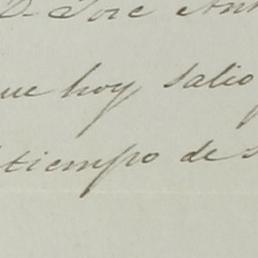 D. José Ant
ue hoy salio
tiempo de